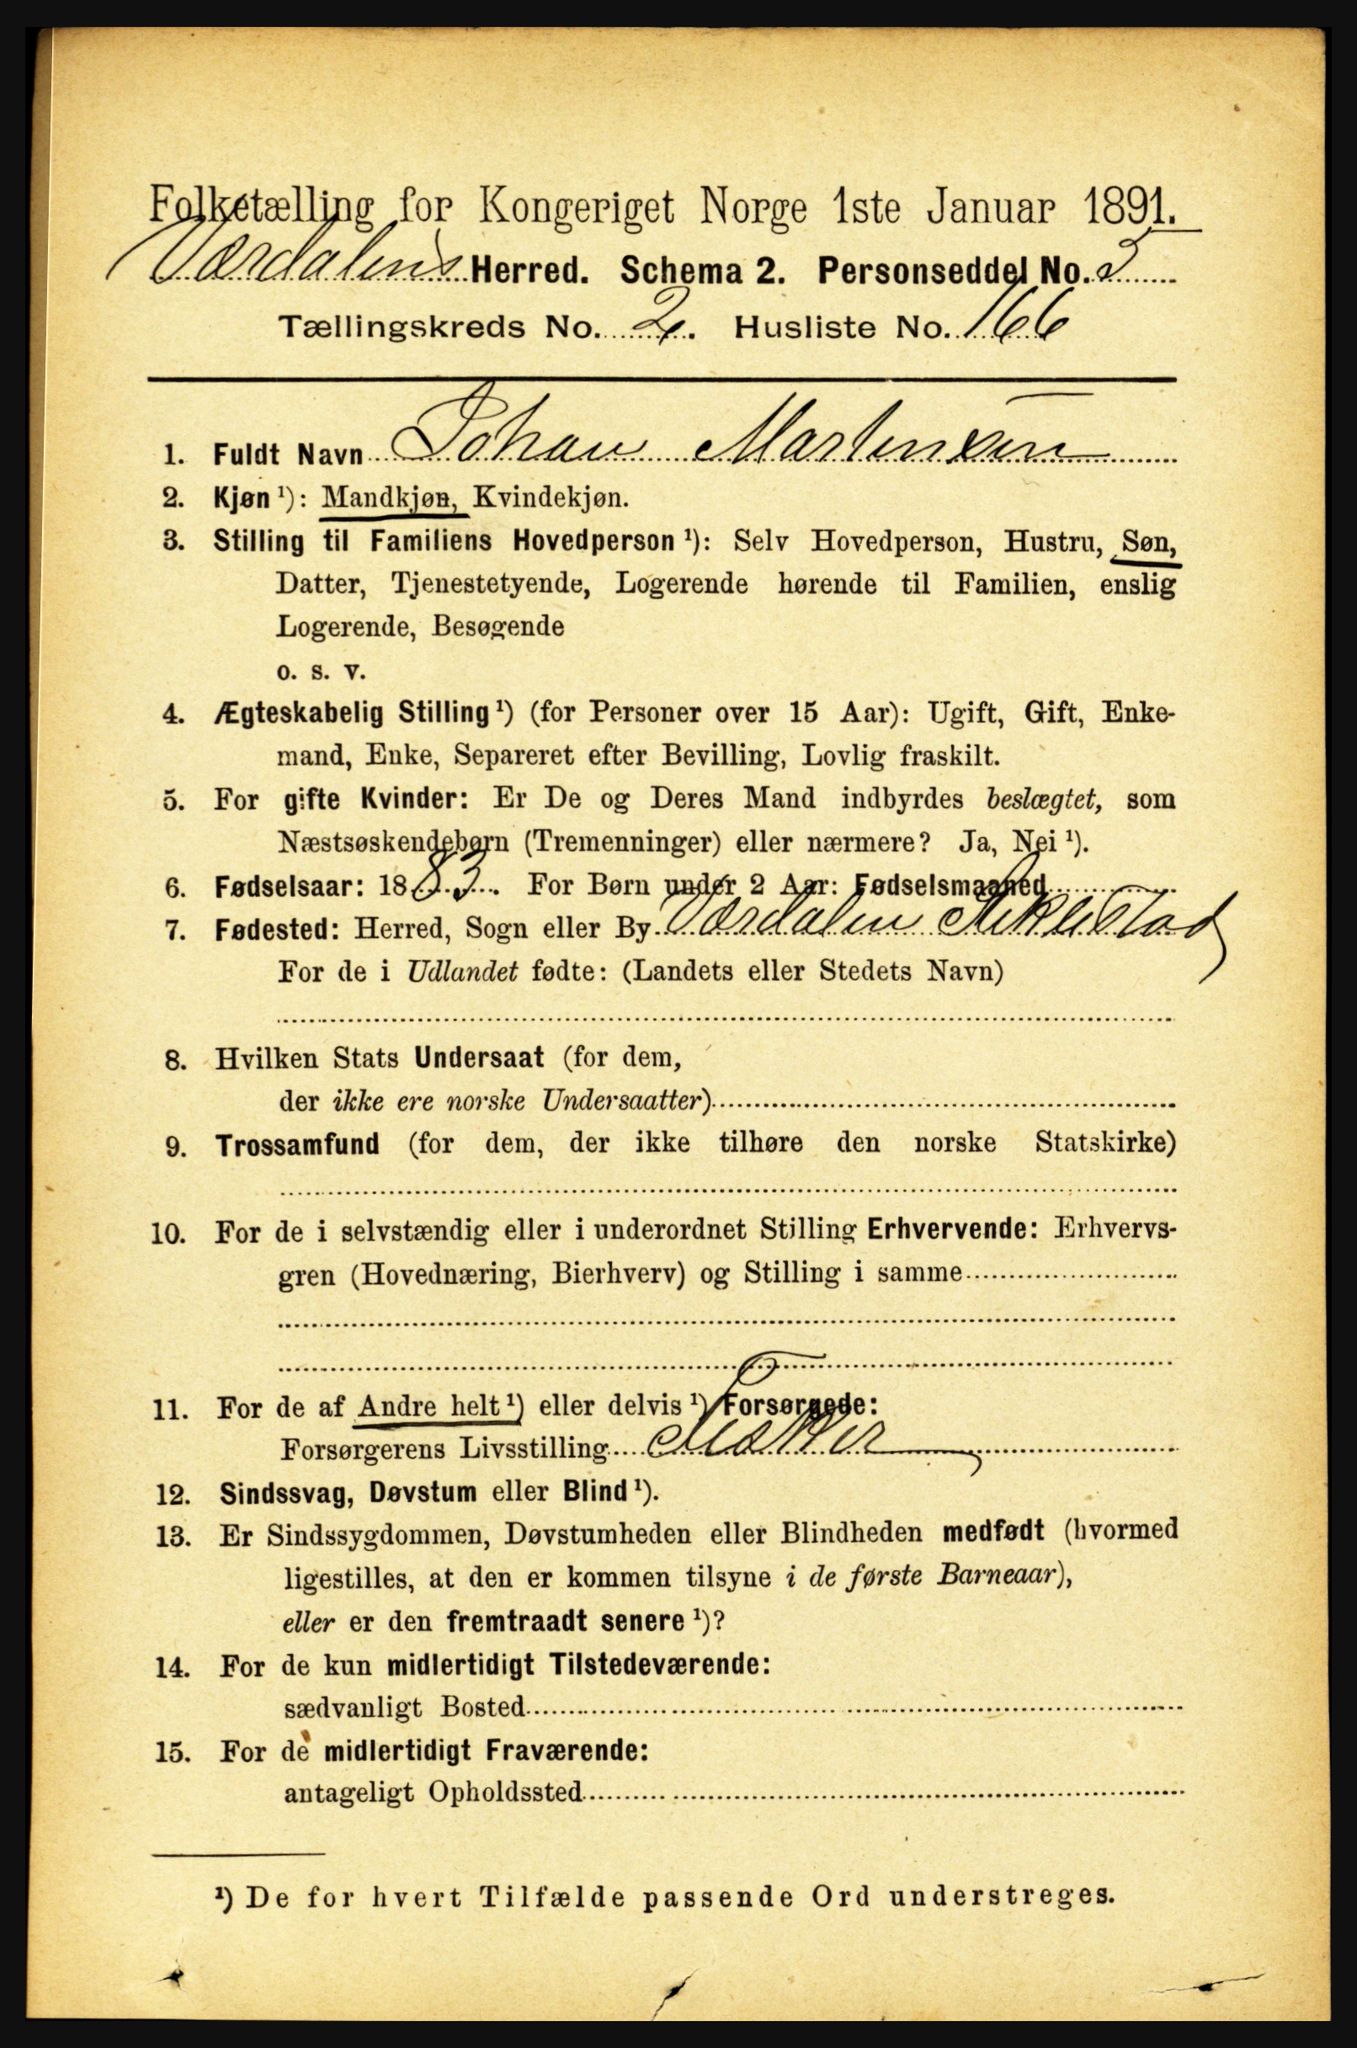 Folketælling for Kongeriget Norge 1ste Januar 1891.
Værdalens Herred. Schema 2. Personseddel No. 5
Tællingskreds No. 2. Husliste No. 166
1. Fuldt Navn Johan Martinsen
2. Kjøn ¹): Mandkjøn, Kvindekjøn.
3. Stilling til Familiens Hovedperson ¹): Selv Hovedperson, Hustru, Søn,
Datter, Tjenestetyende, Logerende hørende til Familien, enslig
Logerende, Besøgende
o. s. v.
4. Ægteskabelig Stilling ¹) (for Personer over 15 Aar): Ugift, Gift, Enke-
mand, Enke, Separeret efter Bevilling, Lovlig fraskilt.
5. For gifte Kvinder: Er De og Deres Mand indbyrdes beslægtet, som
Næstsøskendebørn (Tremenninger) eller nærmere? Ja, Nei ¹).
6. Fødselsaar: 1883. For Børn under 2 Aar: Fødselsmaaned
7. Fødested: Herred, Sogn eller By Værdalen Stiklestad
For de i Udlandet fødte: (Landets eller Stedets Navn)
8. Hvilken Stats Undersaat (for dem,
der ikke ere norske Undersaatter)
9. Trossamfund (for dem, der ikke tilhøre den norske Statskirke)
10. For de i selvstændig eller i underordnet Stilling Erhvervende: Erhvervs-
gren (Hovednæring, Bierhverv) og Stilling i samme
11. For de af Andre helt ¹) eller delvis ¹) Forsørgede:
Forsørgerens Livsstilling Fisker
12. Sindssvag, Døvstum eller Blind ¹).
13. Er Sindssygdommen, Døvstumheden eller Blindheden medfødt (hvormed
ligestilles, at den er kommen tilsyne i de første Barneaar),
eller er den fremtraadt senere ¹)?
14. For de kun midlertidigt Tilstedeværende:
sædvanligt Bosted
15. For de midlertidigt Fraværende:
antageligt Opholdssted
¹) De for hvert Tilfælde passende Ord understreges.